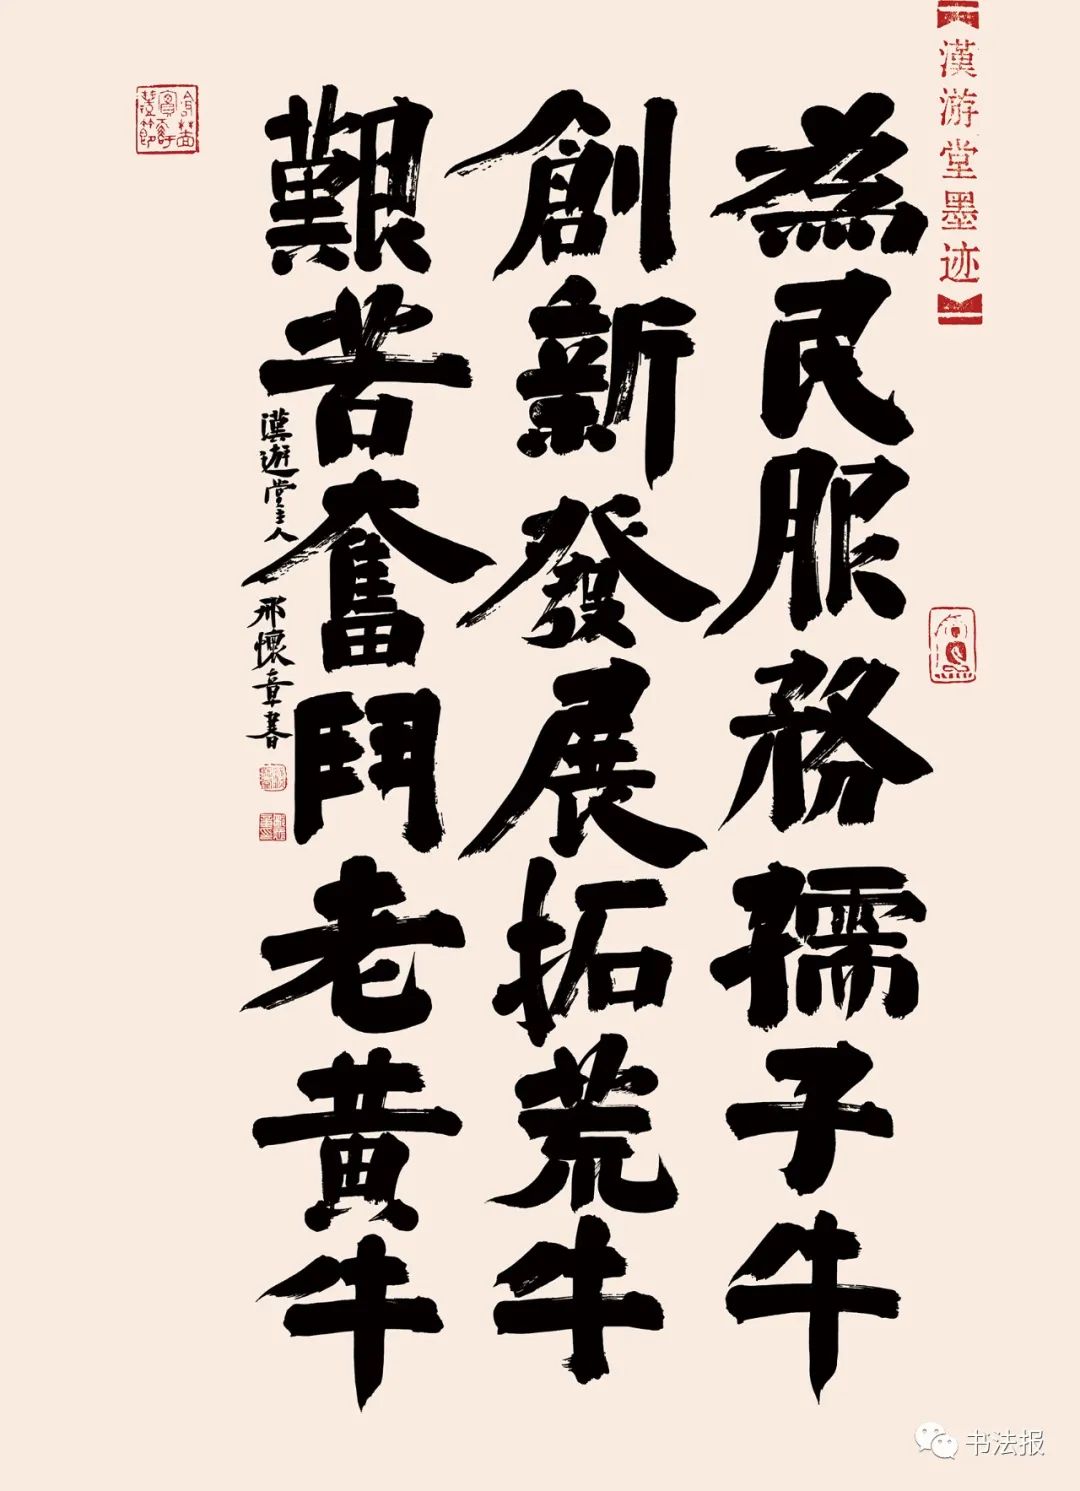 漢游堂墨迹
為民服務孺子牛
創新發展拓荒牛
艱苦奮鬥老黄牛
漢遊堂主人邢懷章書
书法报